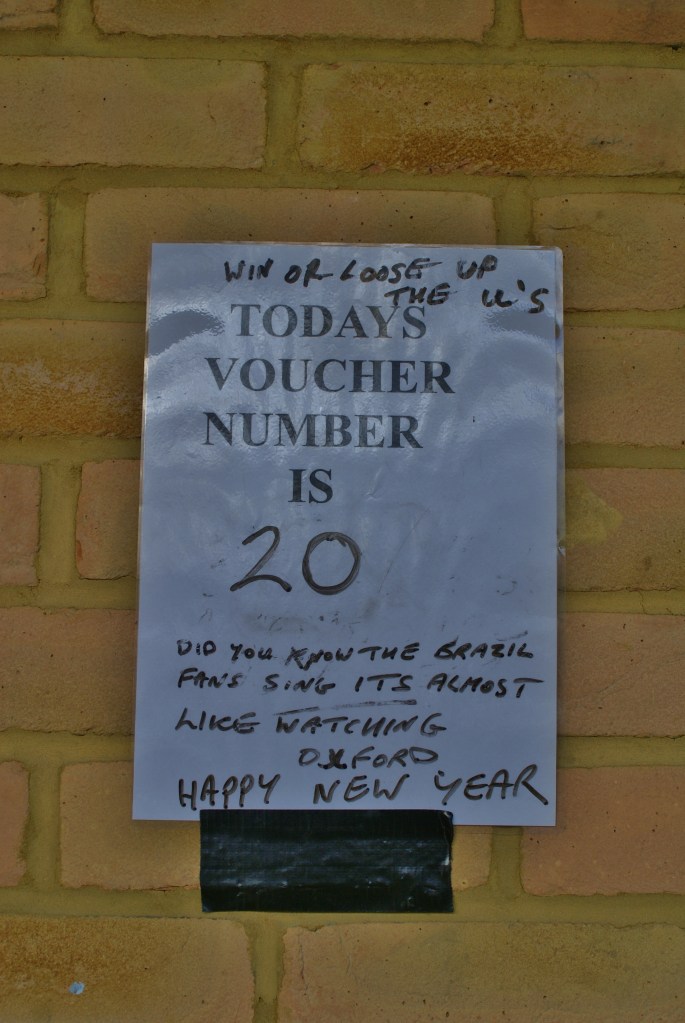 WIN OR LOOSE UP
THE U'S
TODAYS
VOUCHER
NUMBER
IS
20
DID YOU KNOW THE BRAZIL
FANS SING ITS ALMOST
LIKE WATCHING
OXFORD
HAPPY NEW YEAR